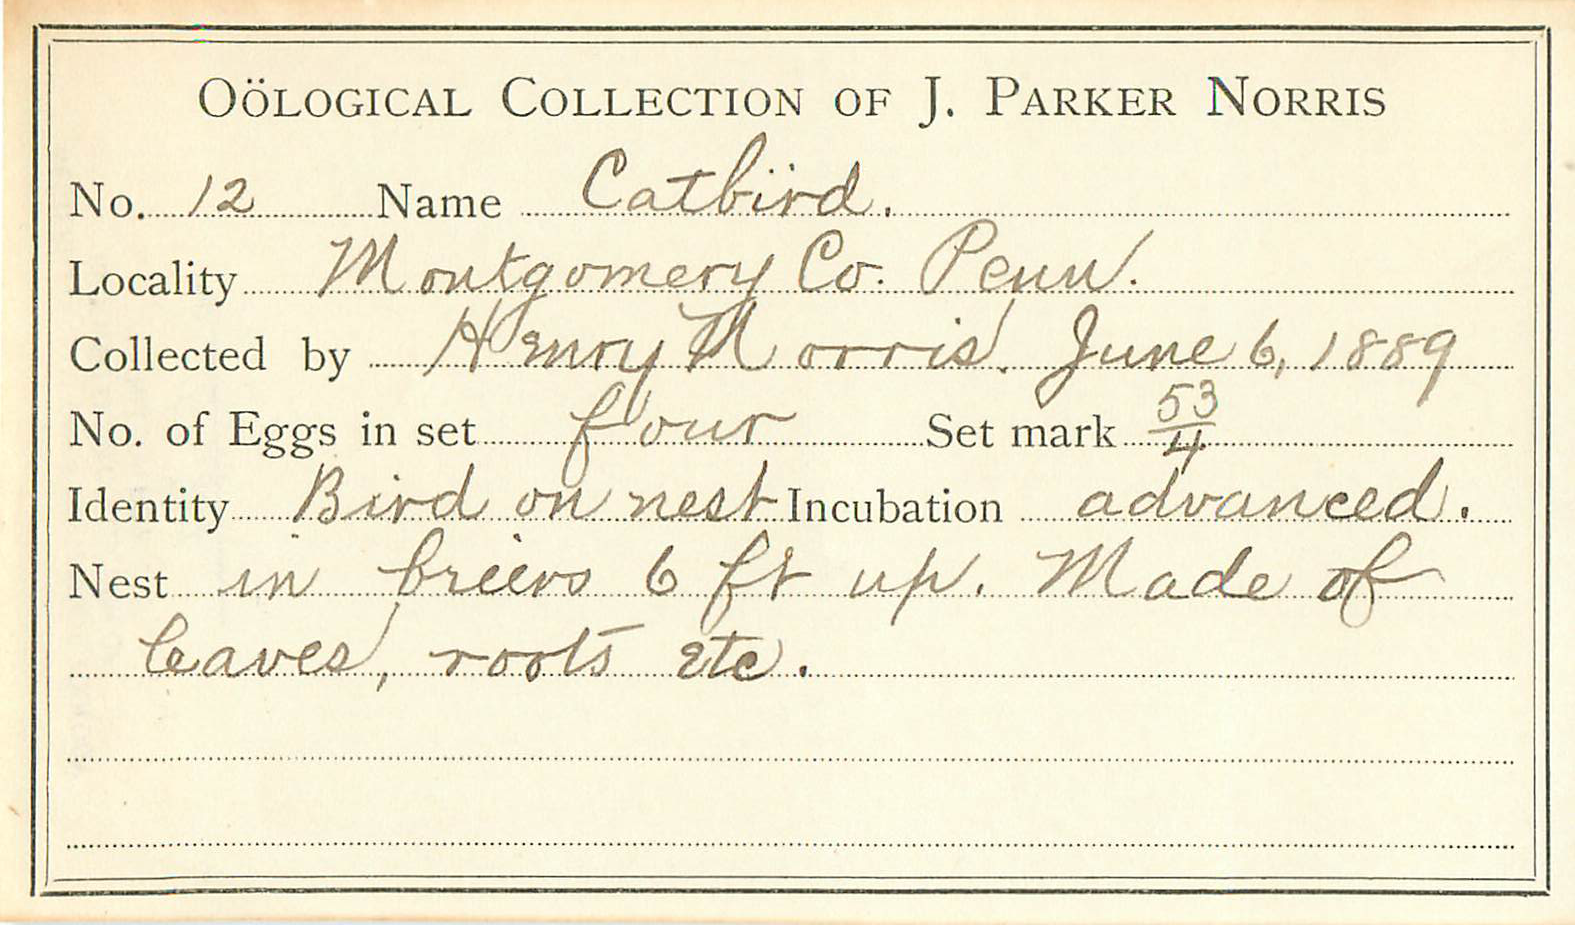 OÖLOGICAL COLLECTION OF J. PARKER NORRIS
No. 12 Name Catbird.
Locality Montgomery Co. Penn.
Collected by Henry Morris. June 6, 1889
No. of Eggs in set four Set mark 53/4
Identity Bird on nest Incubation advanced.
Nest in briers 6 ft up. Made of
leaves, roots etc.